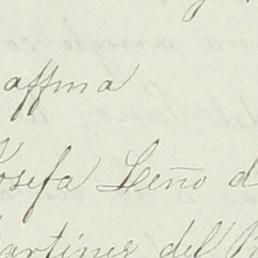 affma
Josefa Leño d
Martines del R